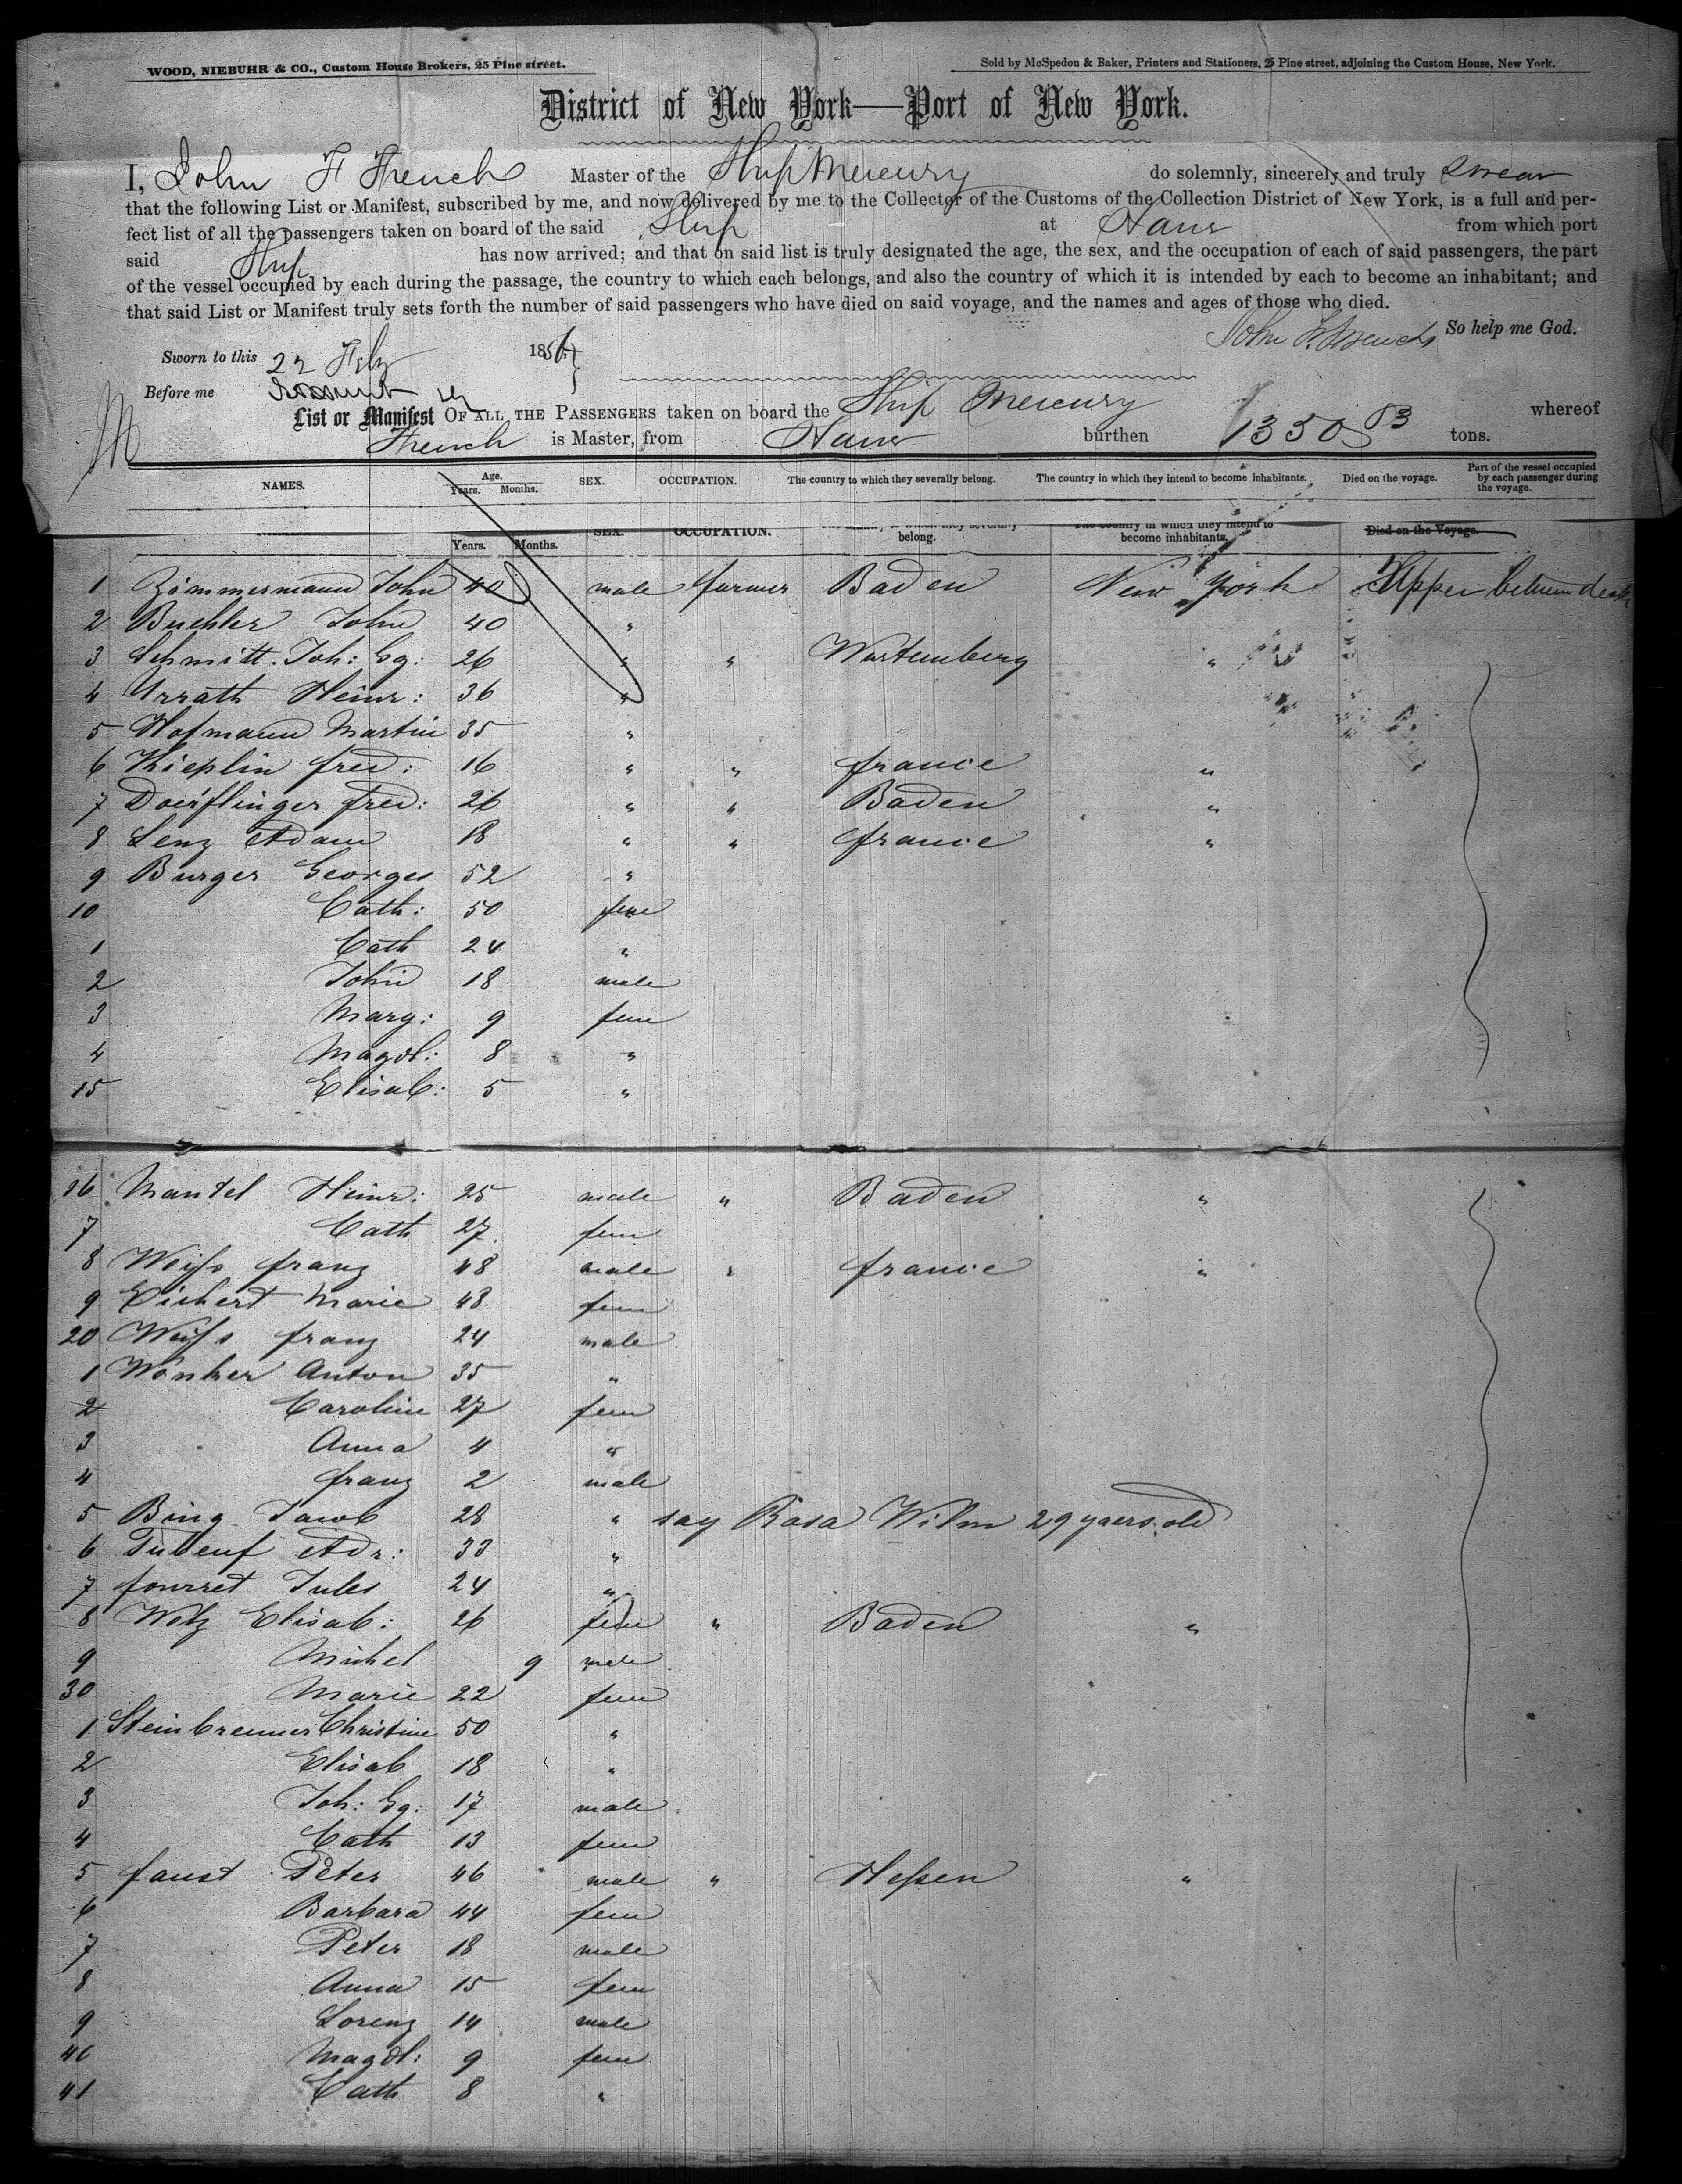 WOOD, NIEBUHR & CO., Custom House Brokers, 25 Pine street.
Sold by McSpedon & Baker, Printers and Stationers, 25 Pine street, adjoining the Custom House, New York.
District of New York—Port of New York.
I, John F French Master of the Ship Mercury do solemnly, sincerely and truly swear
that the following List or Manifest, subscribed by me, and now delivered by me to the Collector of the Customs of the Collection District of New York, is a full and per-
fect list of all the passengers taken on board of the said Ship at Havre from which port
said Ship has now arrived; and that on said list is truly designated the age, the sex, and the occupation of each of said passengers, the part
of the vessel occupied by each during the passage, the country to which each belongs, and also the country of which it is intended by each to become an inhabitant; and
that said List or Manifest truly sets forth the number of said passengers who have died on said voyage, and the names and ages of those who died.
John F. French So help me God.
Sworn to this 22 Feby 1856
Before me
List or Manifest OF ALL THE PASSENGERS taken on board the Ship Mercury whereof
French is Master, from Havre burthen 1350 83 tons.
NAMES. Age. Years. Months. SEX. OCCUPATION. The country to which they severally belong. The country in which they intend to become inhabitants. Died on the voyage. Part of the vessel occupied by each passenger during the voyage.
SEX. OCCUPATION. to which they severally The country in which they intend to
Years. Months. belong. become inhabitants. Died on the Voyage.
1 Zimmermann John 40 male farmer Baden New York Upper between deck
2 Buehler John 40 "
3 Schmitt Joh: Gg: 26 " " Wurtemberg "
4 Urrath Heinr: 36 "
5 Hofmann Martin 35 "
6 Kieplin fred: 16 " " france "
7 Doerflinger fred: 26 " " Baden "
8 Lenz Adam 18 " " france "
9 Burger Georges 52 "
10 Cath: 50 fem
1 Cath 24 "
2 John 18 male
3 Mary: 9 fem
4 Magdl: 8 "
15 Elisab: 5 "
16 Mantel Heinr: 25 male " Baden "
7 Cath 27 fem
8 Weiss franz 48 male " france "
9 Eichert Marie 48 fem
20 Weiss franz 24 male
1 Wonher Anton 35 "
2 Caroline 27 fem
3 Anna 4 "
4 franz 2 male
5 Bing Jacob 28 " say Rosa Wilm 29 yaers old
6 Tubeuf Adr: 33 "
7 fourret Jules 24 "
8 Wetz Elisab: 26 fem " Baden "
9 Michel 9 male
30 Marie 22 fem
1 Steinbrenner Christine 50 "
2 Elisab 18 "
3 Joh: Gg: 17 male
4 Cath 13 fem
5 faust Peter 46 male " Hessen "
6 Barbara 44 fem
7 Peter 18 male
8 Anna 15 fem
9 Lorenz 14 male
40 Magdl: 9 fem
41 Cath 8 "